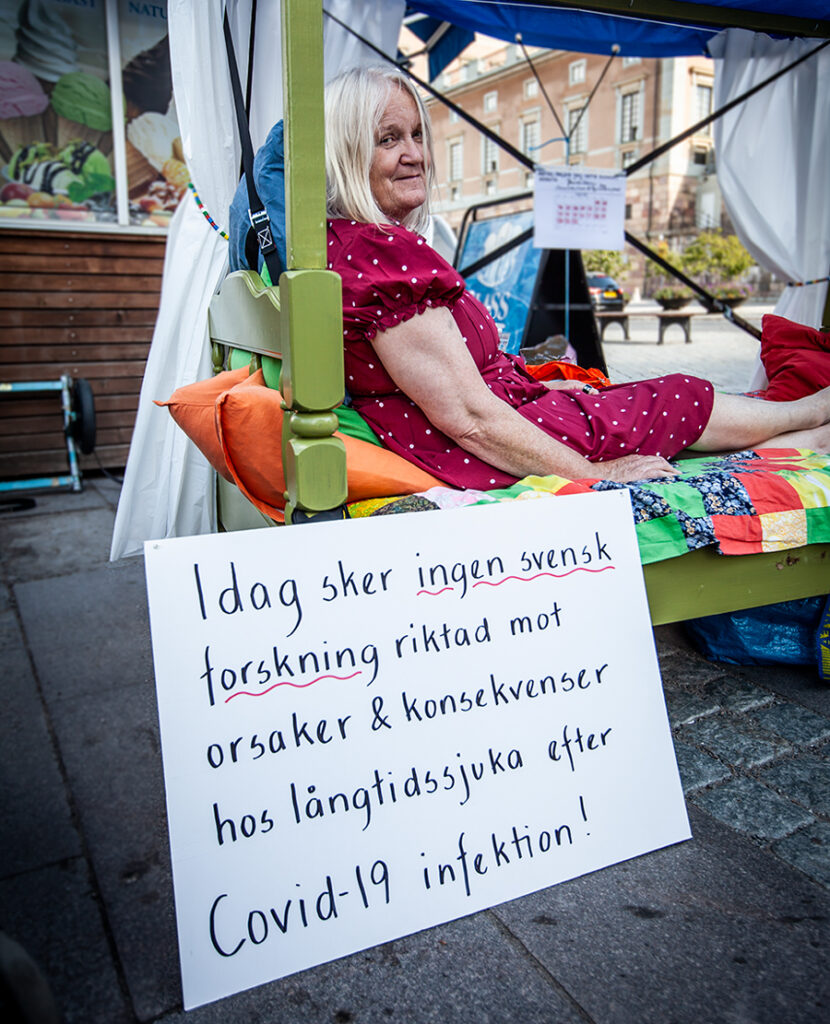 NATU
Idag sker ingen svensk
forskning riktad mot
orsaker & konsekvenser
hos långtidssjuka efter
Covid-19 infektion!